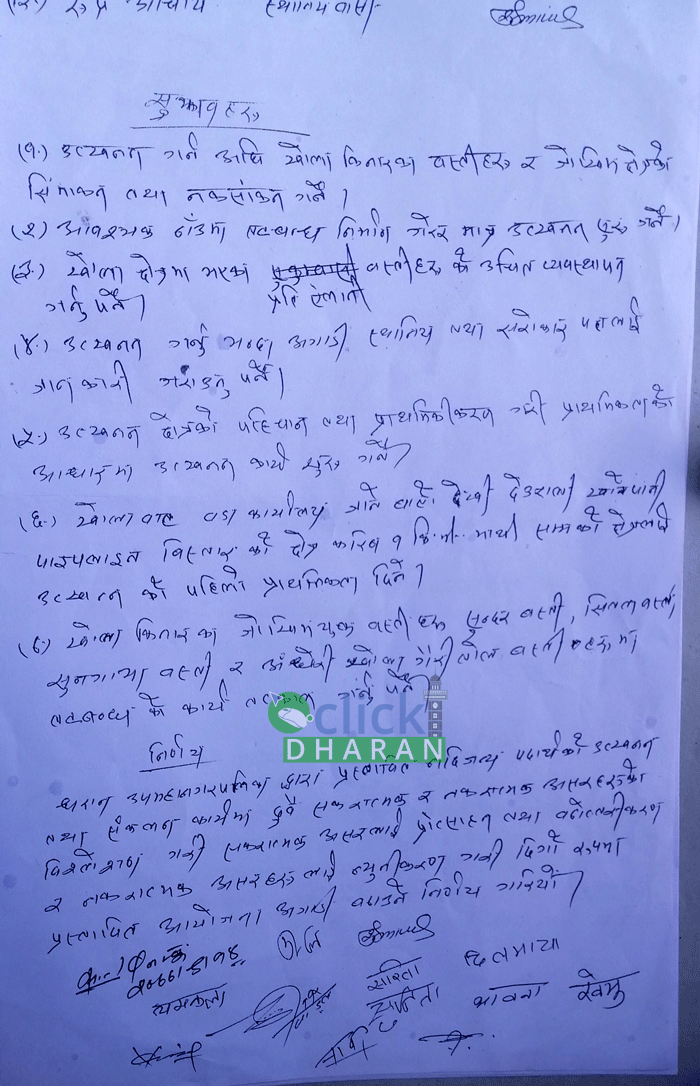 सुझावहरु
(१.) उत्खनन गर्नु अघि खोला किनारका वस्तीहरु र जोखिम क्षेत्रको
सिमाकन तथा नक्सांकन गर्ने ।
(२) आवश्यक ठाँउमा तटबन्ध निर्माण गरेर मात्र उत्खनन सुरु गर्ने ।
(३.) खोला क्षेत्रमा भएका वस्तीहरु को उचित व्यवस्थापन
प्रति ऐलानी
गर्नु पर्ने ।
(४.) उत्खनन गर्नु भन्दा अगाडी स्थानिय तथा सरोकार पक्षलाई
जानकारी गराउनु पर्ने ।
(५.) उत्खनन क्षेत्रको पहिचान तथा प्राथमिकीकरण गरी प्राथमिकताको
आधारमा उत्खनन कार्य सुरु गर्ने
(६.) खोलावाट वडा कार्यालय जाने वाटो देखी देउराली खानेपानी
पाइपलाइन विस्तार को क्षेत्र करिव १ कि.मी. माथी सम्मको क्षेत्रलाई
उत्खनन को पहिलो प्राथमिकता दिने ।
(७) खोला किनारका जोखिमयुक्त वस्ती हरु सुन्दर वस्ती, सितल वस्ती,
सुनगाभा वस्ती र अंधेरी खोला गैरी टोल वस्ती हरुमा
तटबन्ध को कार्य तत्काल गर्नु पर्ने
click
DHARAN
निर्णय
धरान उपमहानगरपालिका द्वारा प्रस्तावित नदिजन्य पदार्थको उत्खनन
तथा संकलन कार्यमा दुवै सकारात्मक र नकारात्मक असरहरुको
विश्लेषण गरी सकारात्मक असरलाई प्रोत्साहन तथा वढोत्तरीकरण
र नकारात्मक असरहरुलाई न्युनीकरण गरी दिगो रुपमा
प्रस्तावित आयोजना अगाडी वढाउने निर्णय गरियो ।
सरिता
दिलमाया
भावना